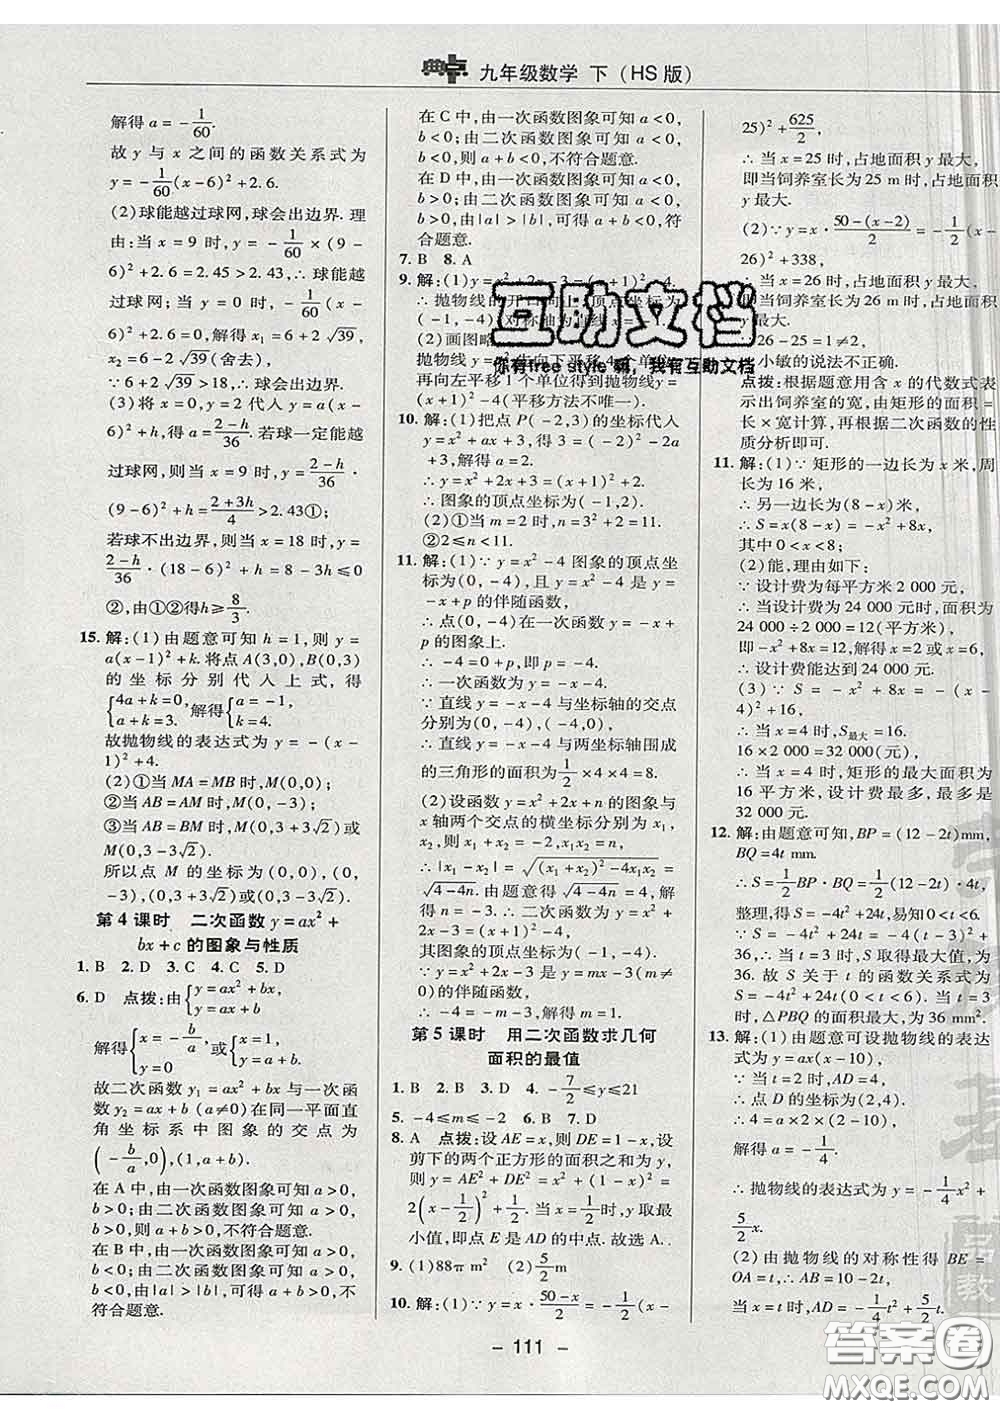 典点 九年级数学 下（HS版）
解得 a = -1/60.
故 y 与 x 之间的函数关系式为
y = -1/60(x-6)²+2.6.
(2)球能越过球网,球会出边界. 理
由:当 x = 9 时, y = -1/60×(9-
6)²+2.6=2.45>2.43,∴球能越
过球网;当 y = 0 时, -1/60(x-6)²+
2.6=0,解得 x₁=6+2√39,
x₂=6-2√39(舍去),
∵6+2√39>18,∴球会出界.
(3)将 x=0,y=2 代入 y=a(x-
6)²+h,得 a=(2-h)/36. 若球一定能越
过球网,则当 x=9 时, y=(2-h)/36·
(9-6)²+h=(2+3h)/4>2.43①;
若球不出边界,则当 x=18 时, y=
(2-h)/36·(18-6)²+h=8-3h≤0
②,由①②得h≥8/3.
15. 解:(1)由题意可知 h=1,则 y=
a(x-1)²+k. 将点A(3,0),B(0,3)
的坐标分别代入上式,得
{4a+k=0, a+k=3. 解得{a=-1, k=4.
故抛物线的表达式为 y=-(x-
1)²+4.
(2)①当 MA=MB 时,M(0,0);
②当 AB=AM 时,M(0,-3);
③当 AB=BM 时,M(0,3+3√2)或
M(0,3-3√2).
所以点 M 的坐标为(0,0),(0,
-3),(0,3+3√2)或(0,3-3√2).
第4课时 二次函数 y=ax²+
bx+c 的图象与性质
1. B 2. D 3. C 4. C 5. D
6. D 点拨:由{y=ax²+bx, y=ax+b,
解得{x=-b/a, y=0 或{x=1, y=a+b.
故二次函数 y₁=ax²+bx 与一次
函数 y₂=ax+b (a≠0)在同一平面直
角坐标系中图象的交点为
(-b/a,0),(1,a+b).
在 A 中,由一次函数图象可知 a>0,
b>0;由二次函数图象可知 a>0,
b>0,则 a+b>0,不符合题意.
在 B 中,由一次函数图象可知 a>0,
b<0;由二次函数图象可知 a>0,
b<0,由|a|>|b|,则 a+b>0,不
符合题意.
在 C 中,由一次函数图象可知 a<0,
b<0;由二次函数图象可知 a<0,
b<0,则 a+b<0,不符合题意.
在 D 中,由一次函数图象可知 a<0,
b>0;由二次函数图象可知 a<0,
b>0,由|a|>|b|,可得 a+b<0,符
合题意.
7. B 8. A
9. 解:(1)y=x²+2x-3=(x+1)²-4.
∴抛物线的开口向上,顶点坐标为
(-1,-4),对称轴为直线 x=-1.
(2)画图略.
抛物线 y=x²先向下平移4个单位,
再向左平移1个单位得到抛物线 y=
(x+1)²-4(平移方法不唯一).
10. 解:(1)把点 P(-2,3)的坐标代入
y=x²+ax+3,得 3=(-2)²-2a
+3,解得 a=2.
∴y=x²+2x+3=(x+1)²+2.
∴图象的顶点坐标为(-1,2).
(2)①当 m=2 时,n=11.
②2≤n<11.
11. 解:(1)∵y=x²-4 图象的顶点坐
标为(0,-4),且 y=x²-4 是 y=
-x+p 的伴随函数,
∴点(0,-4)在一次函数 y=-x+
p 的图象上.
∴-4=0+p,即 p=-4.
∴一次函数为 y=-x-4.
∵直线 y=-x-4 与坐标轴的交点
分别为(0,-4),(-4,0),
∴直线 y=-x-4 与两坐标轴围成
的三角形的面积为1/2×4×4=8.
(2)设函数 y=x²+2x+n 的图象与
x 轴两个交点的横坐标分别为 x₁,
x₂,则 x₁+x₂=-2,x₁x₂=n,
∴|x₁-x₂|=√((x₁+x₂)²-4x₁x₂)
=√(4-4n). 由题意得√(4-4n)=4,
解得 n=-3. ∴函数为 y=x²+
2x-3=(x+1)²-4.
其图象的顶点坐标为(-1,-4).
∵y=x²+2x-3 是 y=mx-3(m≠0)
的伴随函数,
∴-4=-m-3,解得 m=1.
第5课时 用二次函数求几何
面积的最值
1. B 2. B 3. D 4. -7/2≤y≤21
5. -4≤m≤-2 6. B 7. D
8. A 点拨:设 AE=x,则 DE=1-x,
剪下的两个正方形的面积之和为 y,
则 y=AE²+DE²=x²+(1-x)²=
2(x-1/2)²+1/2. 当 x=1/2时,y取最
小值,即点 E 是 AD 的中点. 故选 A.
9. (1)88π m² (2)5/2 m
10. 解:(1)∵y=x·(50-x)/2=-1/2(x-
25)²+625/2,
∴当 x=25 时,占地面积 y 最大,
即当饲养室长为 25 m 时,占地面积
y 最大.
(2)∵y=x·(50-(x-2))/2=-1/2(x-
26)²+338,
∴当 x=26 时,占地面积 y 最大,
即当饲养室长为 26 m 时,占地面积
y 最大.
∴小敏的说法不正确.
点拨:根据题意用含 x 的代数式表
示出饲养室的宽,由矩形的面积=
长×宽计算,再根据二次函数的性
质分析即可.
11. 解:(1)∵矩形的一边长为 x 米,周
长为 16 米,
∴另一边长为(8-x)米,
∴S=x(8-x)=-x²+8x,
其中 0<x<8;
(2)能,理由如下:
∵设计费为每平方米 2 000 元,
∴当设计费为 24 000 元时,面积为
24 000÷2 000=12(平方米),
即-x²+8x=12,解得 x=2 或 x=6.
∴设计费能达到 24 000 元.
(3)∵S=-x²+8x=-(x-
4)²+16,
∴当 x=4 时,S最大=16.
16×2 000=32 000(元),
∴当 x=4 时,矩形的最大面积为
16 平方米,设计费最多,最多是
32 000 元.
12. 解:由题意可知,BP=(12-2t)mm,
BQ=4t mm.
∴S=1/2BP·BQ=1/2(12-2t)·4t,
整理,得 S=-4t²+24t(0<t<6).
∵S=-4t²+24t=-4(t-3)²+
36,∴当 t=3 时,S 取得最大值,为
36. 故 S 关于 t 的函数关系式为
S=-4t²+24t(0<t<6),当 t=3
时,△PBQ 的面积最大,为 36 mm².
13. 解:(1)由题意可设抛物线的表达
式为 y=ax(x-10),
∵当 t=2 时,AD=4,
∴点 D 的坐标为(2,4),
∴4=a×2×(2-10),
解得 a=-1/4.
∴抛物线的表达式为 y=-1/4x²+
5/2x.
(2)由抛物线的对称性得 BE=
OA=t,∴AB=10-2t,
当 x=t时,AD=-1/4t²+5/2t.
- 111 -
互助文档
你有free style 嘛，我有互助文档
答案圈
MXQE.COM